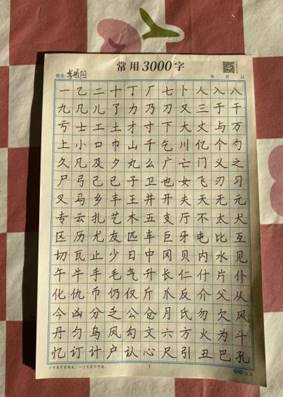 常用3000字
一乙二十丁厂七卜人入八
九几儿了力乃刀又三于干
亏士工土才寸下大丈与万
上小口巾山千乞川亿个勺
久凡及夕丸么广亡门义之
尸弓己已子卫也女飞刃习
叉马乡丰王井开夫天无元
专云扎艺木五支厅不太犬
区历尤友匹车巨牙屯比互
切瓦止少日中冈贝内水见
午牛手毛气升长仁什片仆
化仇币仍仅斤爪反介父从
今凶分乏公仓月氏勿欠风
丹匀乌凤勾文六方火为斗
忆订计户认心尺引丑巴孔